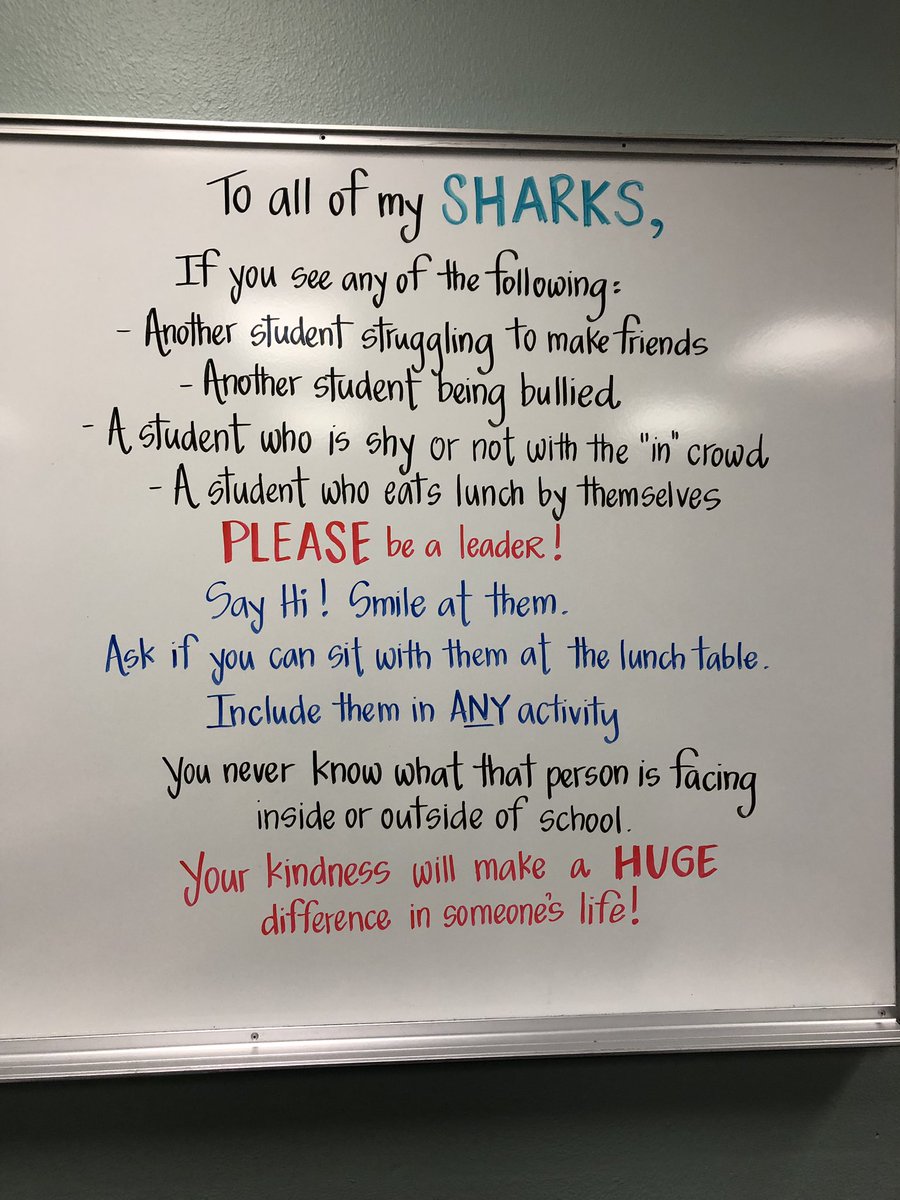 To all of my SHARKS,
If you see any of the following:
- Another student struggling to make friends
- Another student being bullied
- A student who is shy or not with the "in" crowd
- A student who eats lunch by themselves
PLEASE be a leader!
Say Hi! Smile at them.
Ask if you can sit with them at the lunch table.
Include them in ANY activity
You never know what that person is facing
inside or outside of school.
Your kindness will make a HUGE
difference in someone's life!